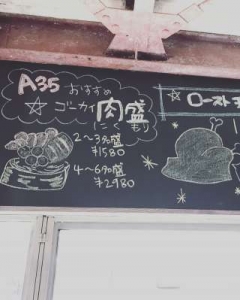 A35 おすすめ
☆ ゴーカイ 肉盛
にく もり
2～3名盛
¥1580
4～6名盛
¥2980
☆ ロースト